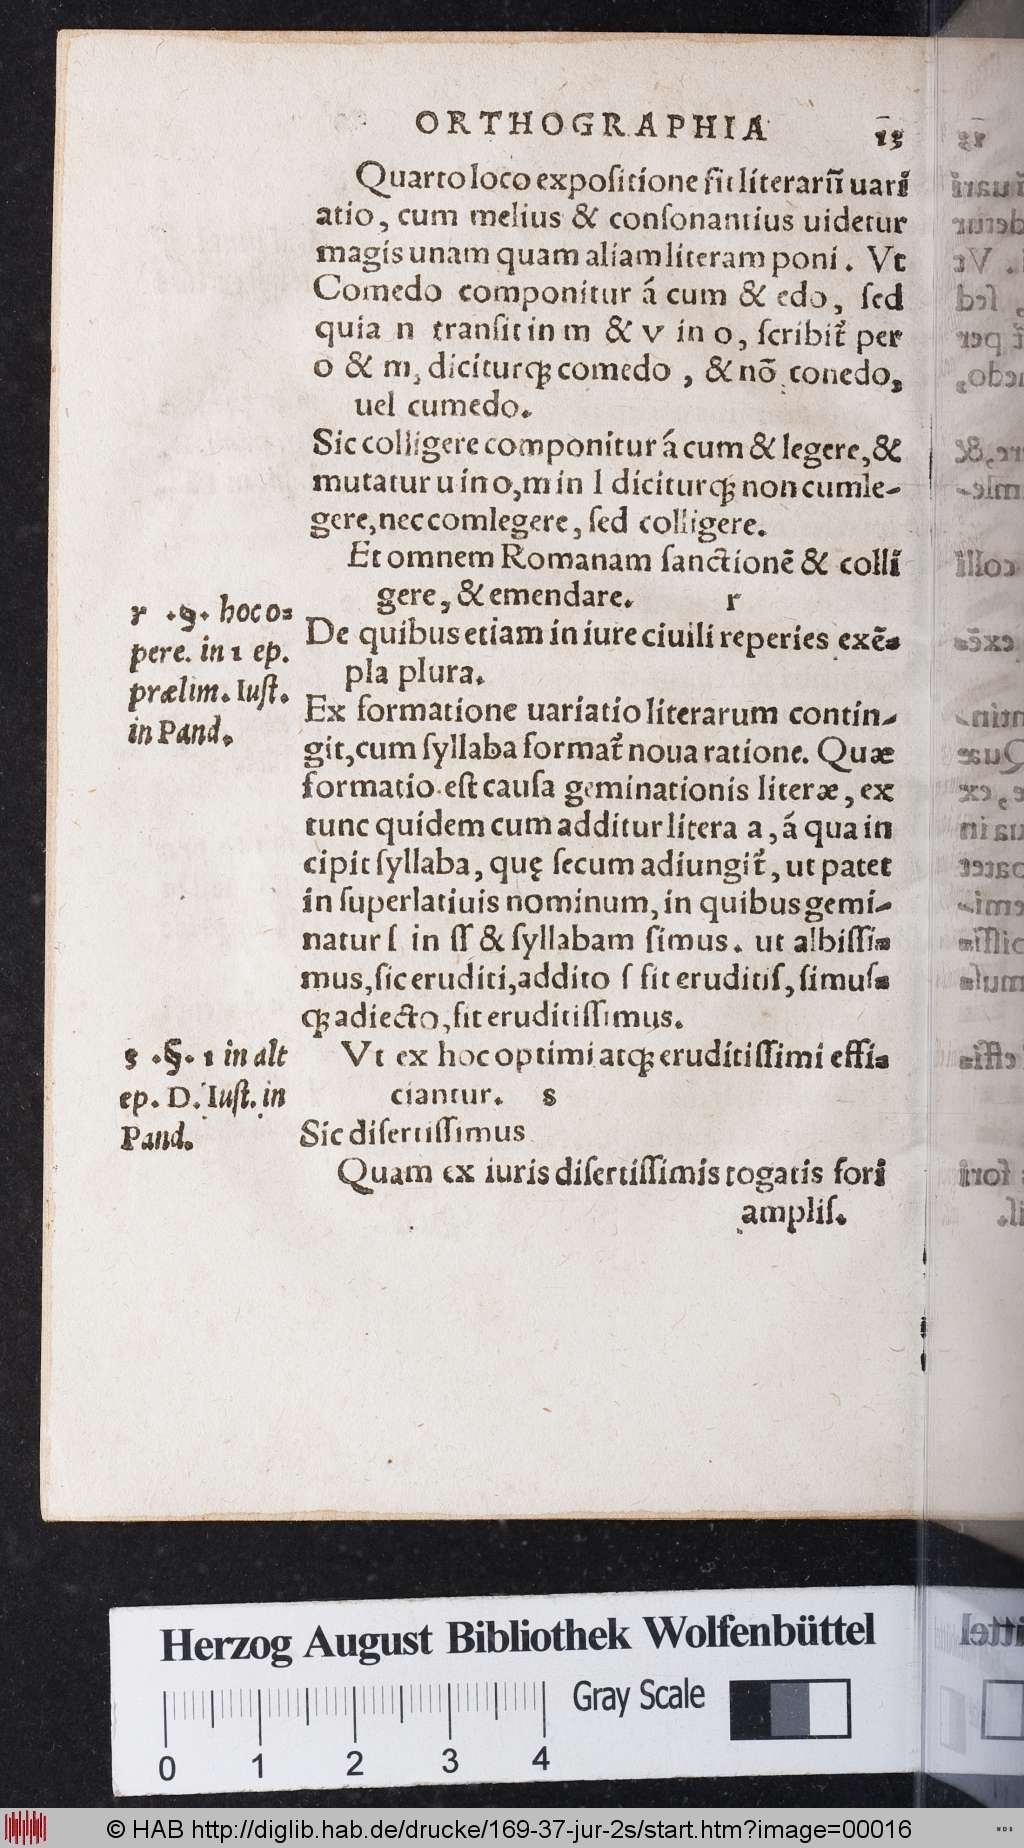 ORTHOGRAPHIA 13
Quarto loco expoſitione fit literarū uari
atio, cum melius & conſonantius uidetur
magis unam quam aliam literam poni. Vt
Comedo componitur á cum & edo, ſed
quia n tranſit in m & v in o, ſcribit᷑ per
o & m, diciturqꝫ comedo, & nō conedo,
uel cumedo.
Sic colligere componitur á cum & legere, &
mutatur u in o, m in l diciturqꝫ non cumle-
gere, nec comlegere, ſed colligere.
Et omnem Romanam ſanctionē & colli
gere, & emendare. r
De quibus etiam in iure ciuili reperies exē-
pla plura.
r .§. hoc o-
pere. in 1 ep.
prælim. Iuſt.
in Pand.
Ex formatione uariatio literarum contin-
git, cum ſyllaba format᷑ noua ratione. Quæ
formatio eſt cauſa geminationis literæ, ex
tunc quidem cum additur litera a, á qua in
cipit ſyllaba, quę ſecum adiungit᷑, ut patet
in ſuperlatiuis nominum, in quibus gemi-
natur ſ in ſſ & ſyllabam ſimus. ut albiſſi-
mus, ſic eruditi, addito ſ fit eruditiſ, ſimuſ-
qꝫ adiecto, fit eruditiſſimus.
Vt ex hoc optimi atqꝫ eruditiſſimi effi-
ciantur. s
s .§. 1 in alt
ep. D. Iuſt. in
Pand.
Sic diſertiſſimus
Quam ex iuris diſertiſſimis togatis fori
ampliſ.
Herzog August Bibliothek Wolfenbüttel
Gray Scale
0 1 2 3 4
© HAB http://diglib.hab.de/drucke/169-37-jur-2s/start.htm?image=00016